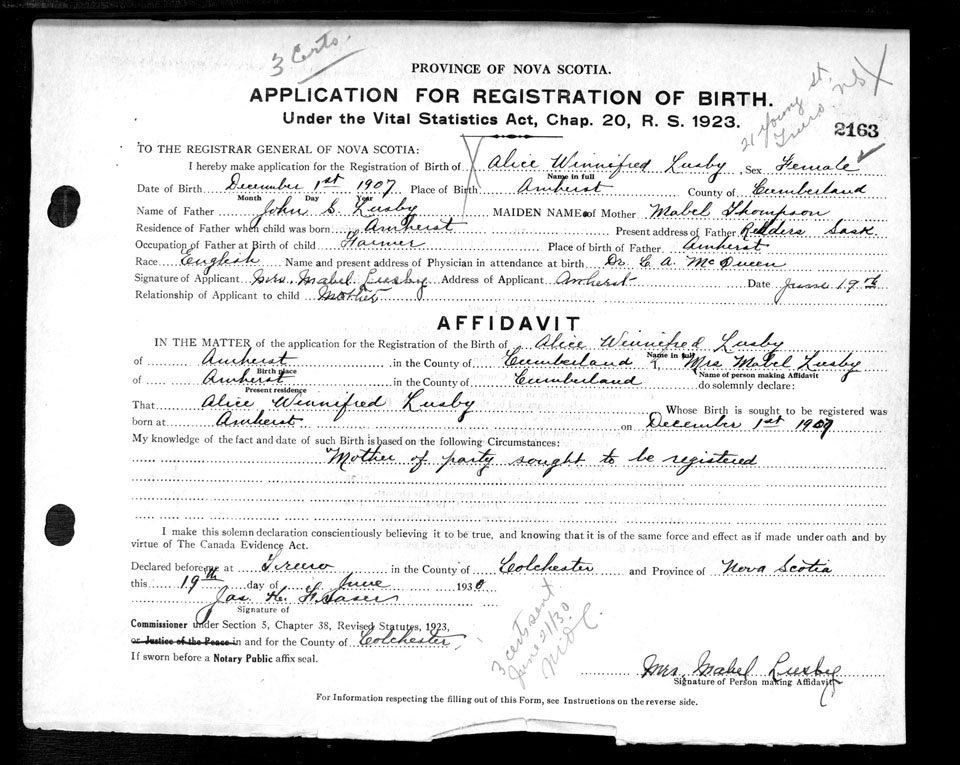 3 Certs.
PROVINCE OF NOVA SCOTIA.
APPLICATION FOR REGISTRATION OF BIRTH.
Under the Vital Statistics Act, Chap. 20, R. S. 1923.
21 Young St.
Truro. NS X
2163
TO THE REGISTRAR GENERAL OF NOVA SCOTIA:
I hereby make application for the Registration of Birth of Alice Winnifred Lusby Sex Female
Name in full
Date of Birth December 1st 1907 Place of Birth Amherst County of Cumberland
Month Day Year
Name of Father John S. Lusby MAIDEN NAME of Mother Mabel Thompson
Residence of Father when child was born Amherst Present address of Father Sask
Occupation of Father at Birth of child Farmer Place of birth of Father Amherst
Race English Name and present address of Physician in attendance at birth Dr. C. A. McQueen
Signature of Applicant Mrs. Mabel Lusby Address of Applicant Amherst Date June 19th
Relationship of Applicant to child Mother
AFFIDAVIT
IN THE MATTER of the application for the Registration of the Birth of Alice Winnifred Lusby
Name in full
of Amherst in the County of Cumberland I, Mrs Mabel Lusby
Birth place Name of person making Affidavit
of Amherst in the County of Cumberland do solemnly declare:
Present residence
That Alice Winnifred Lusby Whose Birth is sought to be registered was
born at Amherst on December 1st 1907
My knowledge of the fact and date of such Birth is based on the following Circumstances:
Mother of party sought to be registered
I make this solemn declaration conscientiously believing it to be true, and knowing that it is of the same force and effect as if made under oath and by
virtue of The Canada Evidence Act.
Declared before me at Truro in the County of Colchester and Province of Nova Scotia
this 19th day of June 1930
Jas. H. Fraser
Signature of
Commissioner under Section 5, Chapter 38, Revised Statutes, 1923,
or Justice of the Peace in and for the County of Colchester
If sworn before a Notary Public affix seal.
3 certs sent
June 21/30
Mrs. Mabel Lusby
Signature of Person making Affidavit
For Information respecting the filling out of this Form, see Instructions on the reverse side.